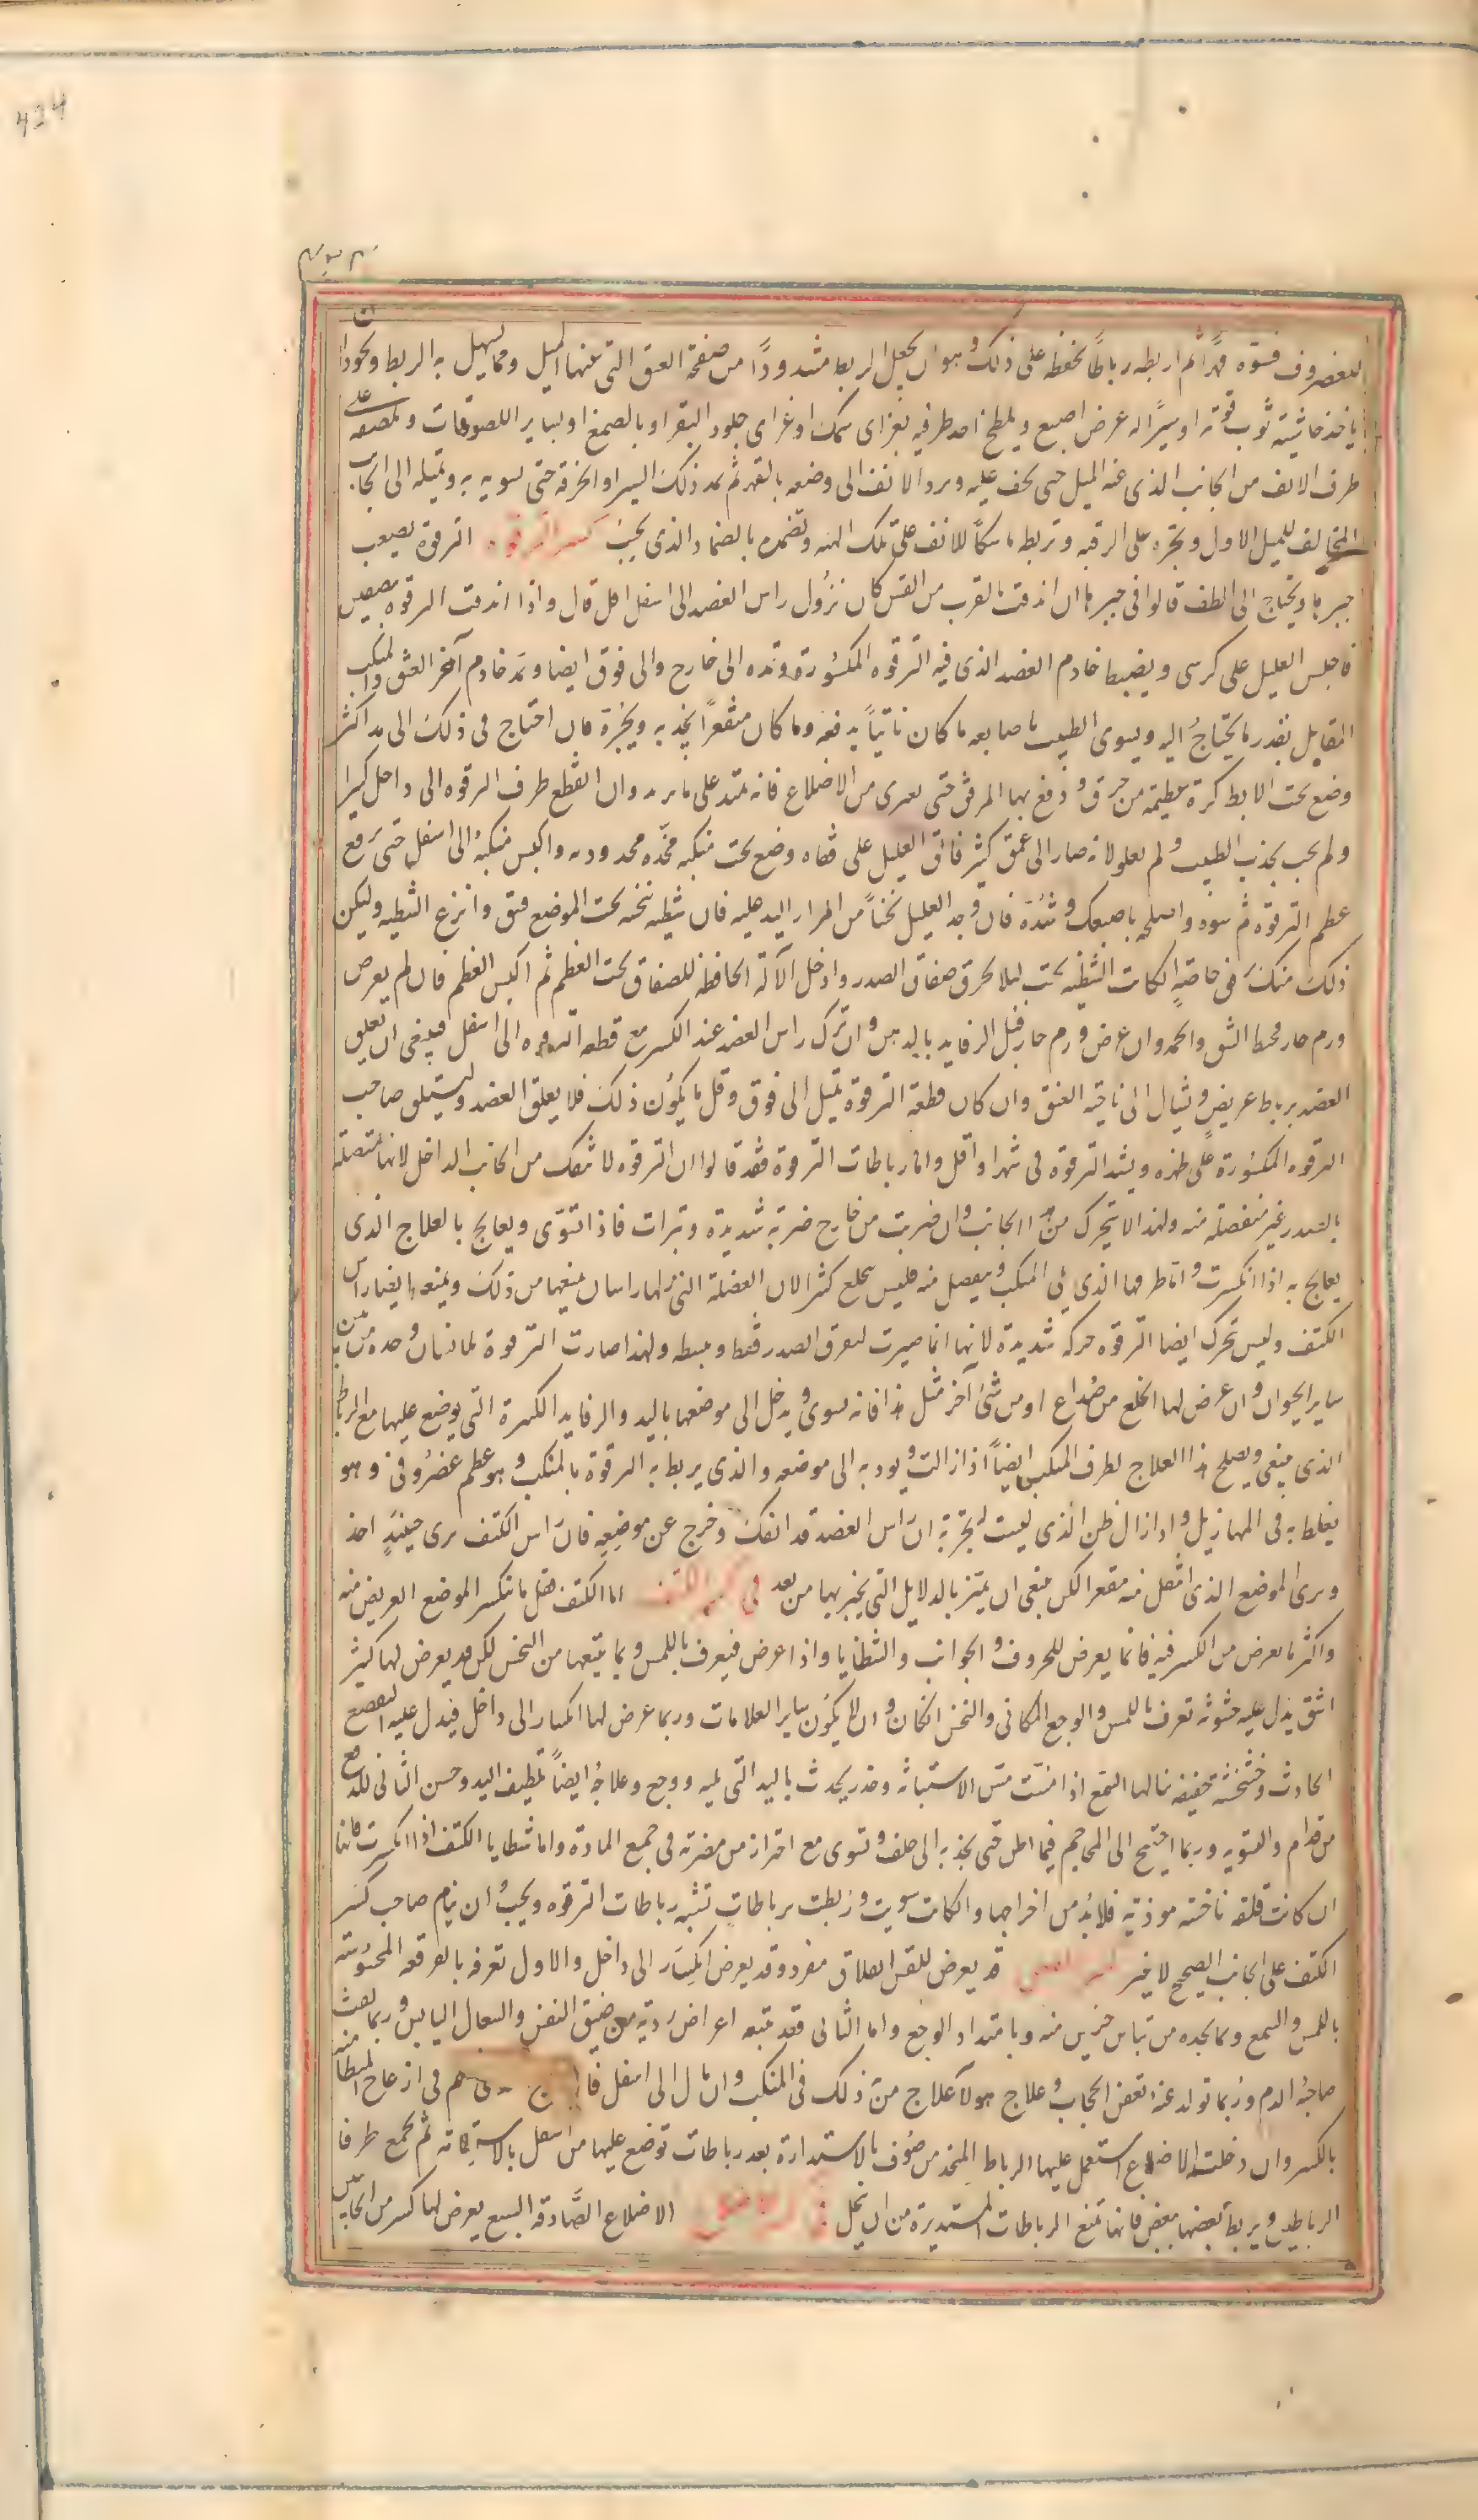 424
للغضروف فسوّه قهرًا ثم اربطه رباطًا يحفظه على ذلك وهو ان يجعل الربط مشدودًا من صفحة العنق التى عنها الميل ومما يسهل به الربط ويجود ان
ياخذ حاشية ثوب قوية او سيرًا له عرض اصبع ويلطخ احد طرفيه بغراى سمك او غراى جلود البقر او بالصمغ او بساير اللصوقات ويلصقه على
طرف الانف من الجانب الذى عنه الميل حتى يجف عليه ويرد الانف الى وضعه بالقهر ثم يمد ذلك السير او الخرقة حتى يسويه به ويميله الى الجانب
المخالف للميل الاول ويجره على الرقبه وتربطه ماسكًا للانف على تلك الهيه وتضمده بالضماد الذى يجب كسر الترقوه الترقوة يصعب
جبرها ويحتاج الى لطف قالوا فى جبرها ان اندقت بالقرب من القس كان نزول راس العضد الى اسفل اقل قال واذا اندقت الترقوه بنصفين
فاجلس العليل على كرسى ويضبط خادم العضد الذى فيه الترقوه المكسورة ويمده الى خارج والى فوق ايضا ويمد خادم آخر العنق والمنكب
المقابل بقدر ما يحتاج اليه ويسوى الطبيب باصابعه ما كان ناتيًا يدفعه وما كان متقعرًا يجذبه ويجره فان احتاج فى ذلك الى مد اكثر
وضع تحت الابط كرة عظيمة من خرق ودفع بها المرفق حتى يعرى من الاضلاع فانه يمتد على ما يريد وان انقطع طرف الترقوه الى داخل كثيرا
ولم يجب بجذب الطبيب ولم يعلو لانه صار الى عمق كثير فالق العليل على قفاه وضع تحت منكبه مخدّه محدودبه واكبس منكبه الى اسفل حتى يرفع
عظم الترقوة ثم سوه واصلحه باصبعك وشدّه فان وجد العليل نخسًا من امرار اليد عليه فان شظيه تنخسه تحت الموضع فشق وانزع الشظيه وليكن
ذلك منك فى خاصة ان كانت الشظيه تحت ليلا يخرق صفاق الصدر وادخل الآلة الحافظه للصفاق تحت العظم ثم اكبس العظم فان لم يعرض
ورم حار فخط الشق والحمه وان عرض ورم حار فبل الرفايد بالدهن وان نزل راس العضد عند الكسر مع قطعه الترقوه الى اسفل فينبغى ان يعلق
العضد برباط عريض ويشال الى ناحية العنق وان كان قطعة الترقوة تميل الى فوق وقل ما يكون ذلك فلا يعلق العضد وليستلق صاحب
الترقوه المكسورة على ظهره ويشد الترقوه فى شهر او اقل واما رباطات الترقوة فقد قالوا ان الترقوه لا تنفك من الجانب الداخل لانها متصله
بالصدر غير منفصله منه ولهذا لا يتحرك من هذا الجانب وان ضربت من خارج ضربة شديدة وتبرات فاذا تسوّى ويعالج بالعلاج الذى
يعالج به اذا انكسرت واما طرفها الذى يلى المنكب وينفصل منه فليس ينخلع كثيرا لان العضلة التى لها راسان يمنعها من ذلك ويمنعه ايضا راس
الكتف وليس تحرك ايضا الترقوه حركه شديدة لانها انما صيرت لتفرق الصدر فقط وتبسطه ولهذا صارت الترقوة للانسان وحده من بين
ساير الحيوان وان عرض لها الخلع من صراع او من شىء آخر مثل هذا فانه يسوى ويدخل الى موضعها باليد والرفايد الكثيرة التى يوضع عليها مع الرباط
الذى ينبغى ويصلح هذا العلاج لطرف المنكب ايضًا اذا زالت ويرد به الى موضعه والذى يربط به الترقوة بالمنكب وهو عظم غضروفى وهو
يغلط به فى المهازيل واذا زال ظن الذى ليست له تجربة ان راس العضد قد انفك وخرج عن موضعه فان راس الكتف يرى حينئذ احد
ويرى الموضع الذى انتقل منه مقعرا لكن ينبغى ان يميّز بالدلايل التى يخبر بها من بعد فى كسر الكتف اما الكتف فقل ما ينكسر الموضع العريض منه
واكثر ما يعرض من الكسر فيه فانما يعرض للحروف والجوانب والشظايا واذا عرض فيعرف باللمس وبما يتبعها من النخس لكن قد يعرض لها كثير
اشق يدل عليه خشونة تعرف باللمس والوجع المكانى والنخس ان كان وان لا يكون ساير العلامات وربما عرض لها انكسار الى داخل فيدل عليه التقصع
الحادث وخشخشة خفيفه ينالها السمع اذا مست مس الاستبانه وخدر يحدث باليد التى تليه ووجع وعلاجه ايضًا تلطيف اليد وحسن التانى للدفع
من قدام والتسويه وربما احتيج الى المحاجم فيما اظن حتى يجذبه الى خلف وتسوى مع احتراز من مضرته فى جمع المادة واما شظايا الكتف اذا انكسرت فانها
ان كانت قلقه ناخسه موذية فلا بد من اخراجها وان كانت سويت وربطت برباطات تشبه رباطات الترقوه ويجب ان ينام صاحب كسر
الكتف على الجانب الصحيح لا غير كسر القس قد يعرض للقس انفلاق مفرد وقد يعرض انكسار الى داخل والاول تعرفه بالفرقعه المحسوسة
باللمس والسمع وبما يجده من تباين جزيين منه وبامتداد الوجع واما الثانى فقد تتبعه اعراض ردية من ضيق النفس والسعال اليابس وربما نفث
صاحبه الدم وربما تولد عنه تعفن الحجاب وعلاج هولاء علاج من ذلك فى المنكب وان مال الى اسفل فى ازعاج المتطامنه
بالكسر وان دخلت الاضلاع استعمل عليها الرباط المتخذ من صوف بالاستدارة بعد رباطات توضع عليها من اسفل بالاستقامة ثم يجمع طرفا
الرباطين ويربط بعضها ببعض فانها تمنع الرباطات المستديرة من ان تنحل الاضلاع الصّادقة السبع يعرض لها كسر من الجانبين